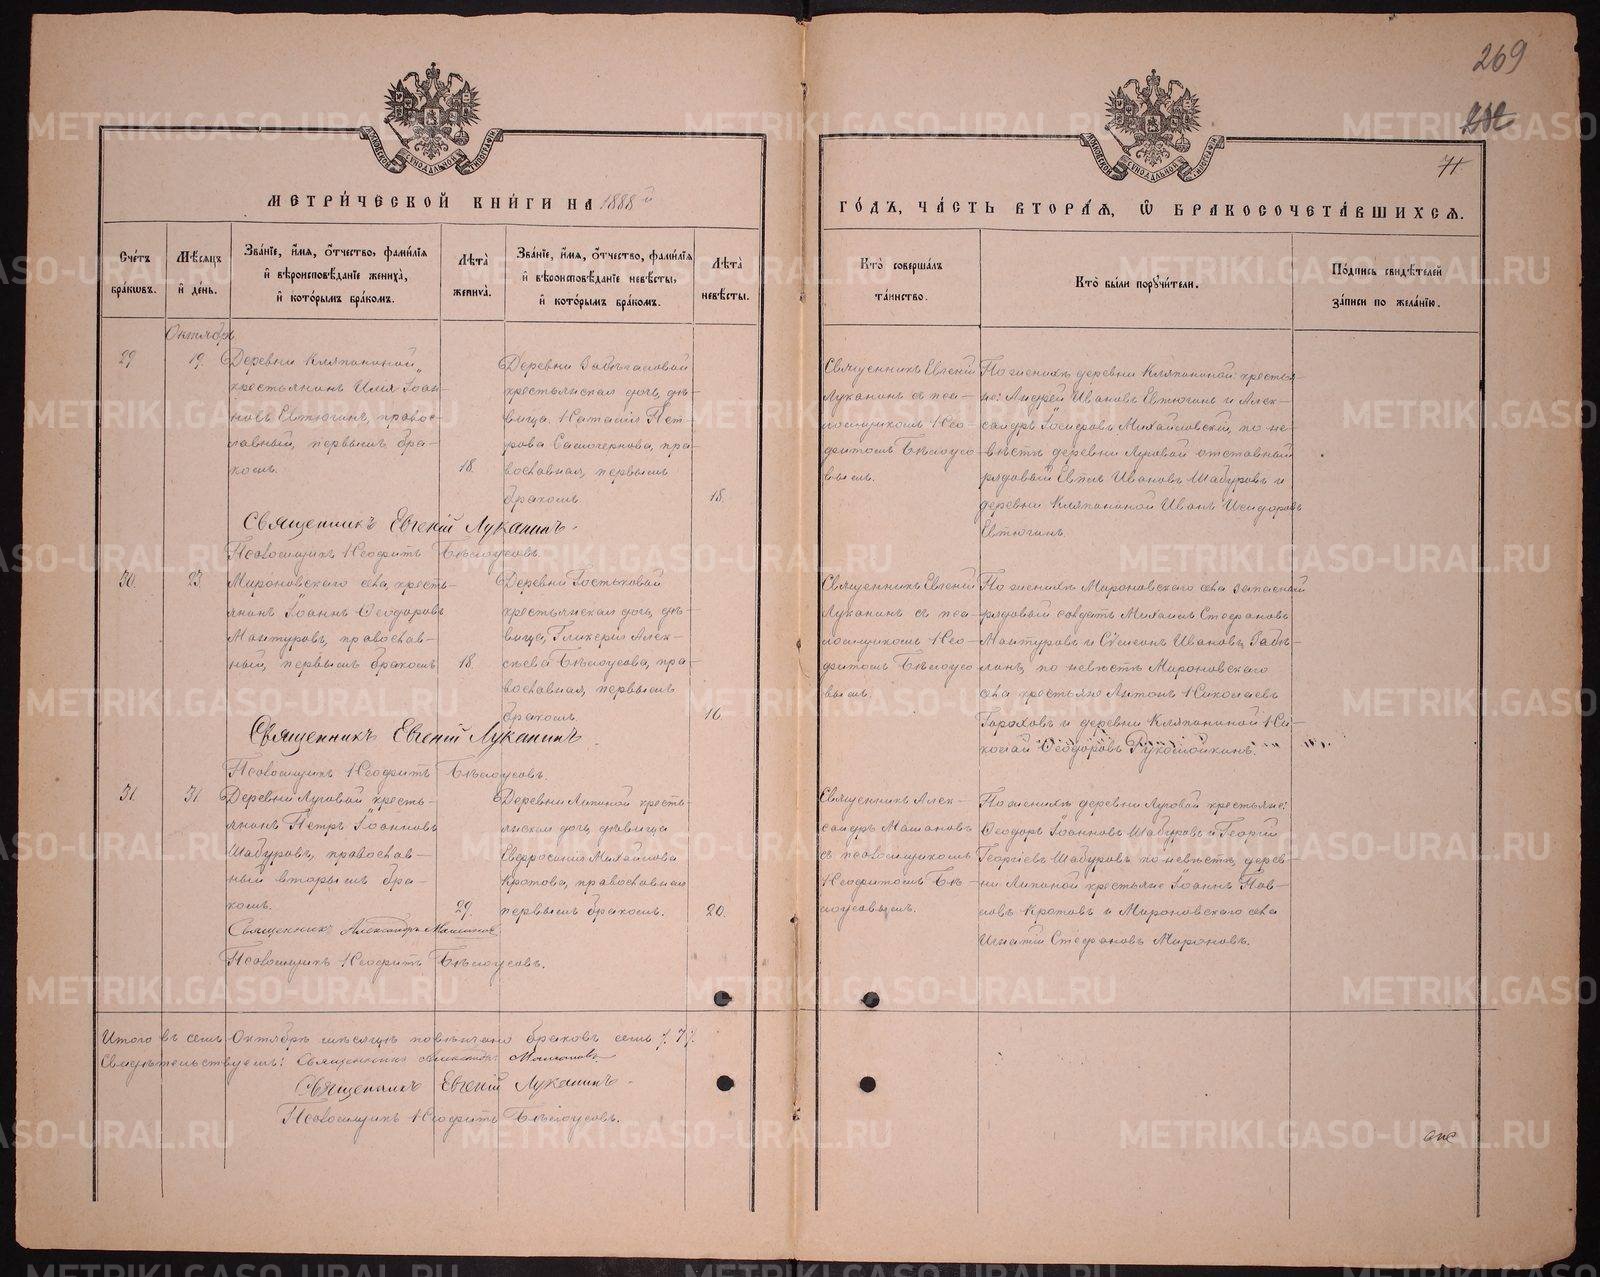 269
71
МЕТРИЧЕСКОЙ КНИГИ НА 1888й
ГОДЪ, ЧАСТЬ ВТОРАЯ, Ѡ БРАКОСОЧЕТАВШИХСЯ.
Счетъ браковъ.
Мѣсяцъ и день.
Званіе, имя, отчество, фамилія и вѣроисповѣданіе жениха, и которымъ бракомъ.
Лѣта жениха.
Званіе, имя, отчество, фамилія и вѣроисповѣданіе невѣсты, и которымъ бракомъ.
Лѣта невѣсты.
Кто совершалъ таинство.
Кто были поручители.
Подпись свидѣтелей записи по желанію.
Октябрь
29
19.
Деревни Кляпониной
крестьянинъ Илія Іоан-
новъ Евтюгинъ, правос-
лавный, первымъ бра-
комъ.
18.
Деревни
крестьянская дочь, дѣ-
вица Наталія Пет-
рова Самочернова, пра-
вославная, первымъ
бракомъ.
18.
Священникъ Евгеній
Луканинъ съ пса-
ломщикомъ Нео-
фитомъ Бѣлоусо-
вымъ.
По женихѣ деревни Кляпониной крестья-
не: Андрей Ивановъ Евтюгинъ и Алек-
сандръ Іосифовъ Михайловскій, по не-
вѣстѣ деревни Луговой отставный
рядовый Ивановъ Шабуровъ и
деревни Кляпониной Иванъ Исидоровъ
Евтюгинъ.
Священникъ Евгеній Луканинъ.
Псаломщикъ Неофитъ Бѣлоусовъ.
30.
23.
Мироновскаго села, кресть-
янинъ Іоаннъ Ѳеодоровъ
Мантуровъ, православ-
ный, первымъ бракомъ
18.
Деревни Гостьковой
крестьянская дочь, дѣ-
вица, Гликерія Алек-
сѣева Бѣлоусова, пра-
вославная, первымъ
бракомъ.
16.
Священникъ Евгеній
Луканинъ съ пса-
ломщикомъ Нео-
фитомъ Бѣлоусо-
вымъ.
По женихѣ Мироновскаго села запасный
рядовый солдатъ Михаилъ Стефановъ
Мантуровъ и Сѵмеонъ Ивановъ Забѣ-
линъ, по невѣстѣ Мироновскаго
села крестьяне Антонъ Николаевъ
Гораховъ и деревни Кляпониной Ни-
колай Ѳеодоровъ Рукомойкинъ.
Священникъ Евгеній Луканинъ.
Псаломщикъ Неофитъ Бѣлоусовъ.
31.
31
Деревни Луговой кресть-
янинъ Петръ Іоанновъ
Шабуровъ, православ-
ный вторымъ бра-
комъ.
29.
Деревни Липиной кресть-
янская дочь, дѣвица
Евфросинія Михайлова
Кротова, православная
первымъ бракомъ.
20.
Священникъ Алек-
сандръ
съ псаломщикомъ
Неофитомъ Бѣ-
лоусовымъ.
По женихѣ деревни Луговой крестьяне:
Ѳеодоръ Іоанновъ Шабуровъ и Георгій
Георгіевъ Шабуровъ по невѣстѣ, дерев-
ни Липиной крестьяне Іоаннъ Пав-
ловъ Кротовъ и Мироновскаго села
Игнатій Стефановъ Мироновъ.
Священникъ Александръ
Псаломщикъ Неофитъ Бѣлоусовъ.
Итого въ семъ Октябрѣ мѣсяцѣ повѣнчано браковъ семь /.7/.
Свидѣтельствуемъ: Священникъ Александръ
Священникъ Евгеній Луканинъ.
Псаломщикъ Неофитъ Бѣлоусовъ.
METRIKI.GASO-URAL.RU